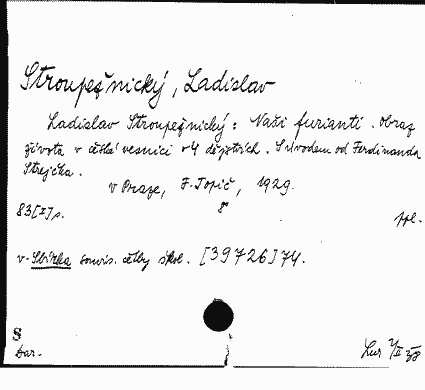 Stroupežnický, Ladislav
Ladislav Stroupežnický: Naši furianti. Obraz
života v české vesnici v 4 dějstvích. S úvodem od Ferdinanda
Strejčka.
v Praze, F. Topič, 1929.
83[I]s. 8°
ppl.
v. Sbírka souvis. četby škol. [39726] 74.
S
Dar.